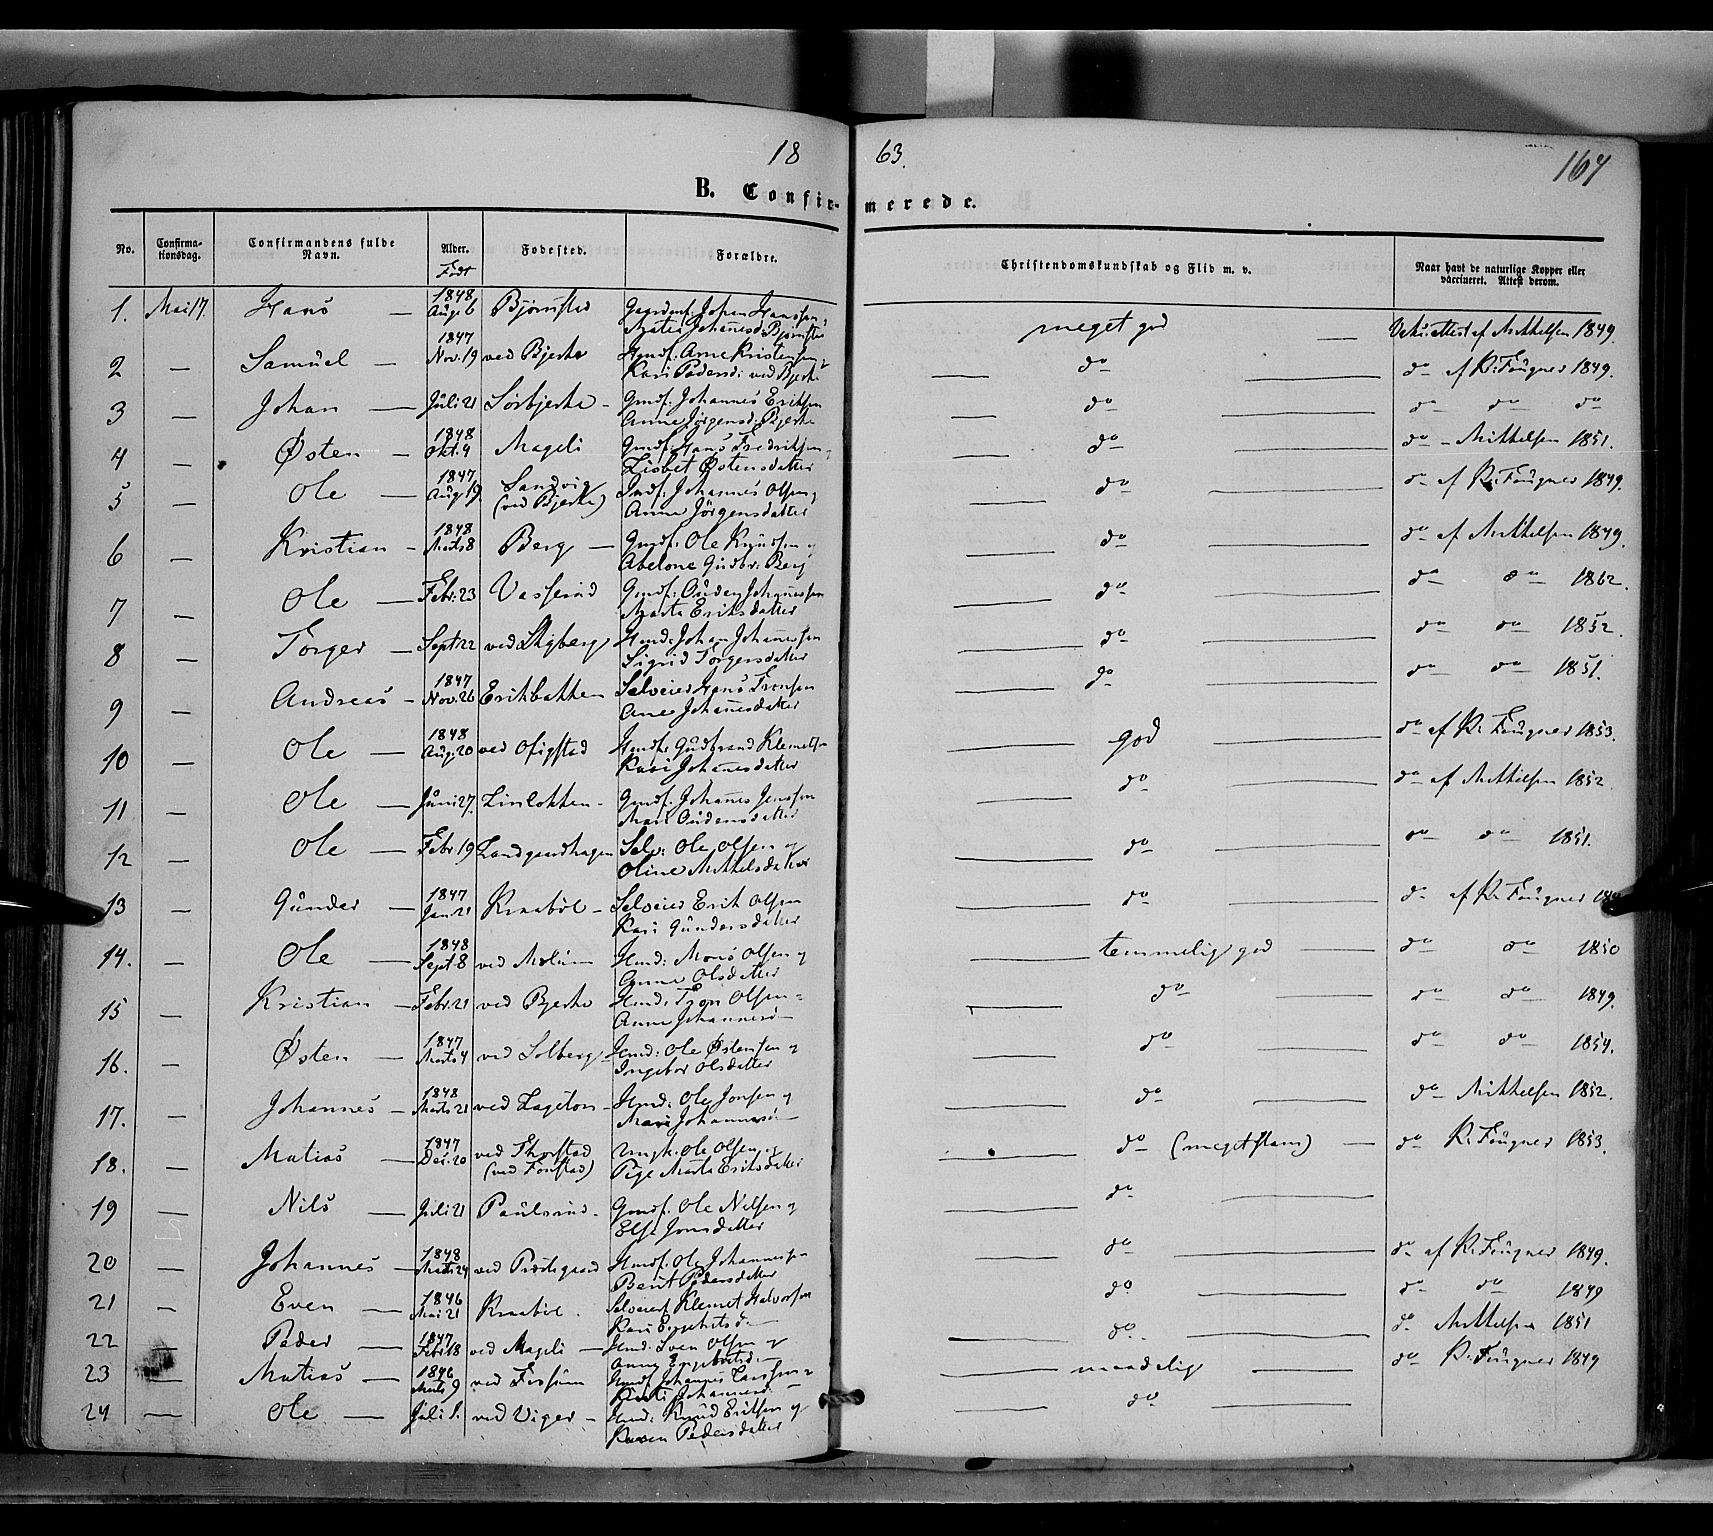 18 63.
167
B. Confirmerede.
No. Confirmationsdag. Confirmandens fulde Navn. Alder. Født Fødested. Forældre. Christendomskundskab og Flid m. v. Naar havt de naturlige Kopper eller vaccineret. Attest derom.
1. Mai 17. Hans — 1848 Aug. 6 Bjørnstad Johan Hanssen Johannesd. Bjørnstad meget god — af Mikkelsen 1849.
2 — Samuel — 1847 Nov. 19 ved Bjerke Hmdf. Arne Kristensen Kari Pedersd: ved Bjerke — do — do af R. Fougner 1849.
3 — Johan — Juli 21 Sørbjerke Gmdf: Johannes Eriksen Anne Jörgensd. Bjerke — do — do do do
4 — Østen — 1848 Okt. 4 Mageli Gmdf. Hans Fredriksen Lisbet Østensdatter — do — do Mikkelsen 1851.
5 — Ole — 1847 Aug. 19 Sandvig (ved Bjerke) Indf. Johannes Olsen Anne Jörgensdatter — do — do af R. Fougner 1849.
6 — Kristian — 1848 Marts 8 Berg — Gmdf. Ole Knudsen og Abelone Gudbr: Berg — do — do af Mikkelsen 1849.
7 — Ole — Febr. 23 Vasrud Gmdf. Ouden Johannessen Marta Eriksdatter — do — do do 1862.
8 — Torger — Sept 22 ved Skyberg Hmd: Johan Johannessen Sigrid Torgersdatter — do — do do 1852.
9 — Andreas — 1847 Nov. 26 Erikbakken Selveier Hans Tronsen Ane Johannesdatter — do — do do 1851.
10 — Ole — 1848 Aug. 20 ved Ofigstad Hmdf. Gudbrand Klemetsen Kari Johannesdatter — god — do af R. Fougner 1853.
11 — Ole — Juni 27. Linlokken Gmdf. Johannes Jenssen Mari Oudensdatter — do — do af Mikkelsen 1852.
12 — Ole — Febr 19 Landgardhagen Selv: Ole Olsen og Oline Mikkelsdatter — do — do do 1851.
13 — Gunder — 1847 Jan. 21 Kraabøl Selveier Erik Olsen Kari Gundersdatter — do — do af R. Fougner
14. — Ole — 1848 Sept 8 ved Melum Hmd: Mons Olsen og Olsdatter — temmelig god — do do 1850
15 — Kristian — Febr. 21 ved Bjerke Hmd: Tron Olsen Anne Johannesd — do — do do 1849.
16. — Østen — 1847 Marts 4 ved Solberg Hmd: Ole Østensen og Ingebor Olsdatter — do — do do 1854.
17. — Johannes — 1848 Marts 21 ved Lageton Hmd: Ole Jonsen og Mari Johannesd — do — do Mikkelsen 1852.
18. — Matias — 1847 Des. 20 ved Thorstad (ved Fonstad) Ungk. Ole Olsen og Pige Marta Eriksdatter — do (meget slam) — do R. Fougner 1853.
19 — Nils Juli 21 Paulsrud. Gmdf. Ole Nilsen og Else Jonsdatter — do —
20 — Johannes — 1848 Marts 24 ved Hmdf. Ole Johannessen Berit Pedersdatter — do — do af R. Fougner 1849.
21 — Even — 1846 Mai 21 Kraabøl. Selveier Klemet Halvorsen Kari Engebretsd — do — do do 1849
22 — Peder — 1847 Febr 18 ved Mageli — Hmd: Sven Olsen og Anne Engebretsd: — do — do Mikkelsen 1851
23 — Matias — 1846 Marts 9 ved Fossum Hmdf Johannes Larssen Kirsti Johannesd: — maadelig — do R. Fougner 1849
24 — Ole — Juli 1. ved Viger — Hmd: Knud Eriksen og Karen Pedersdatter — do —